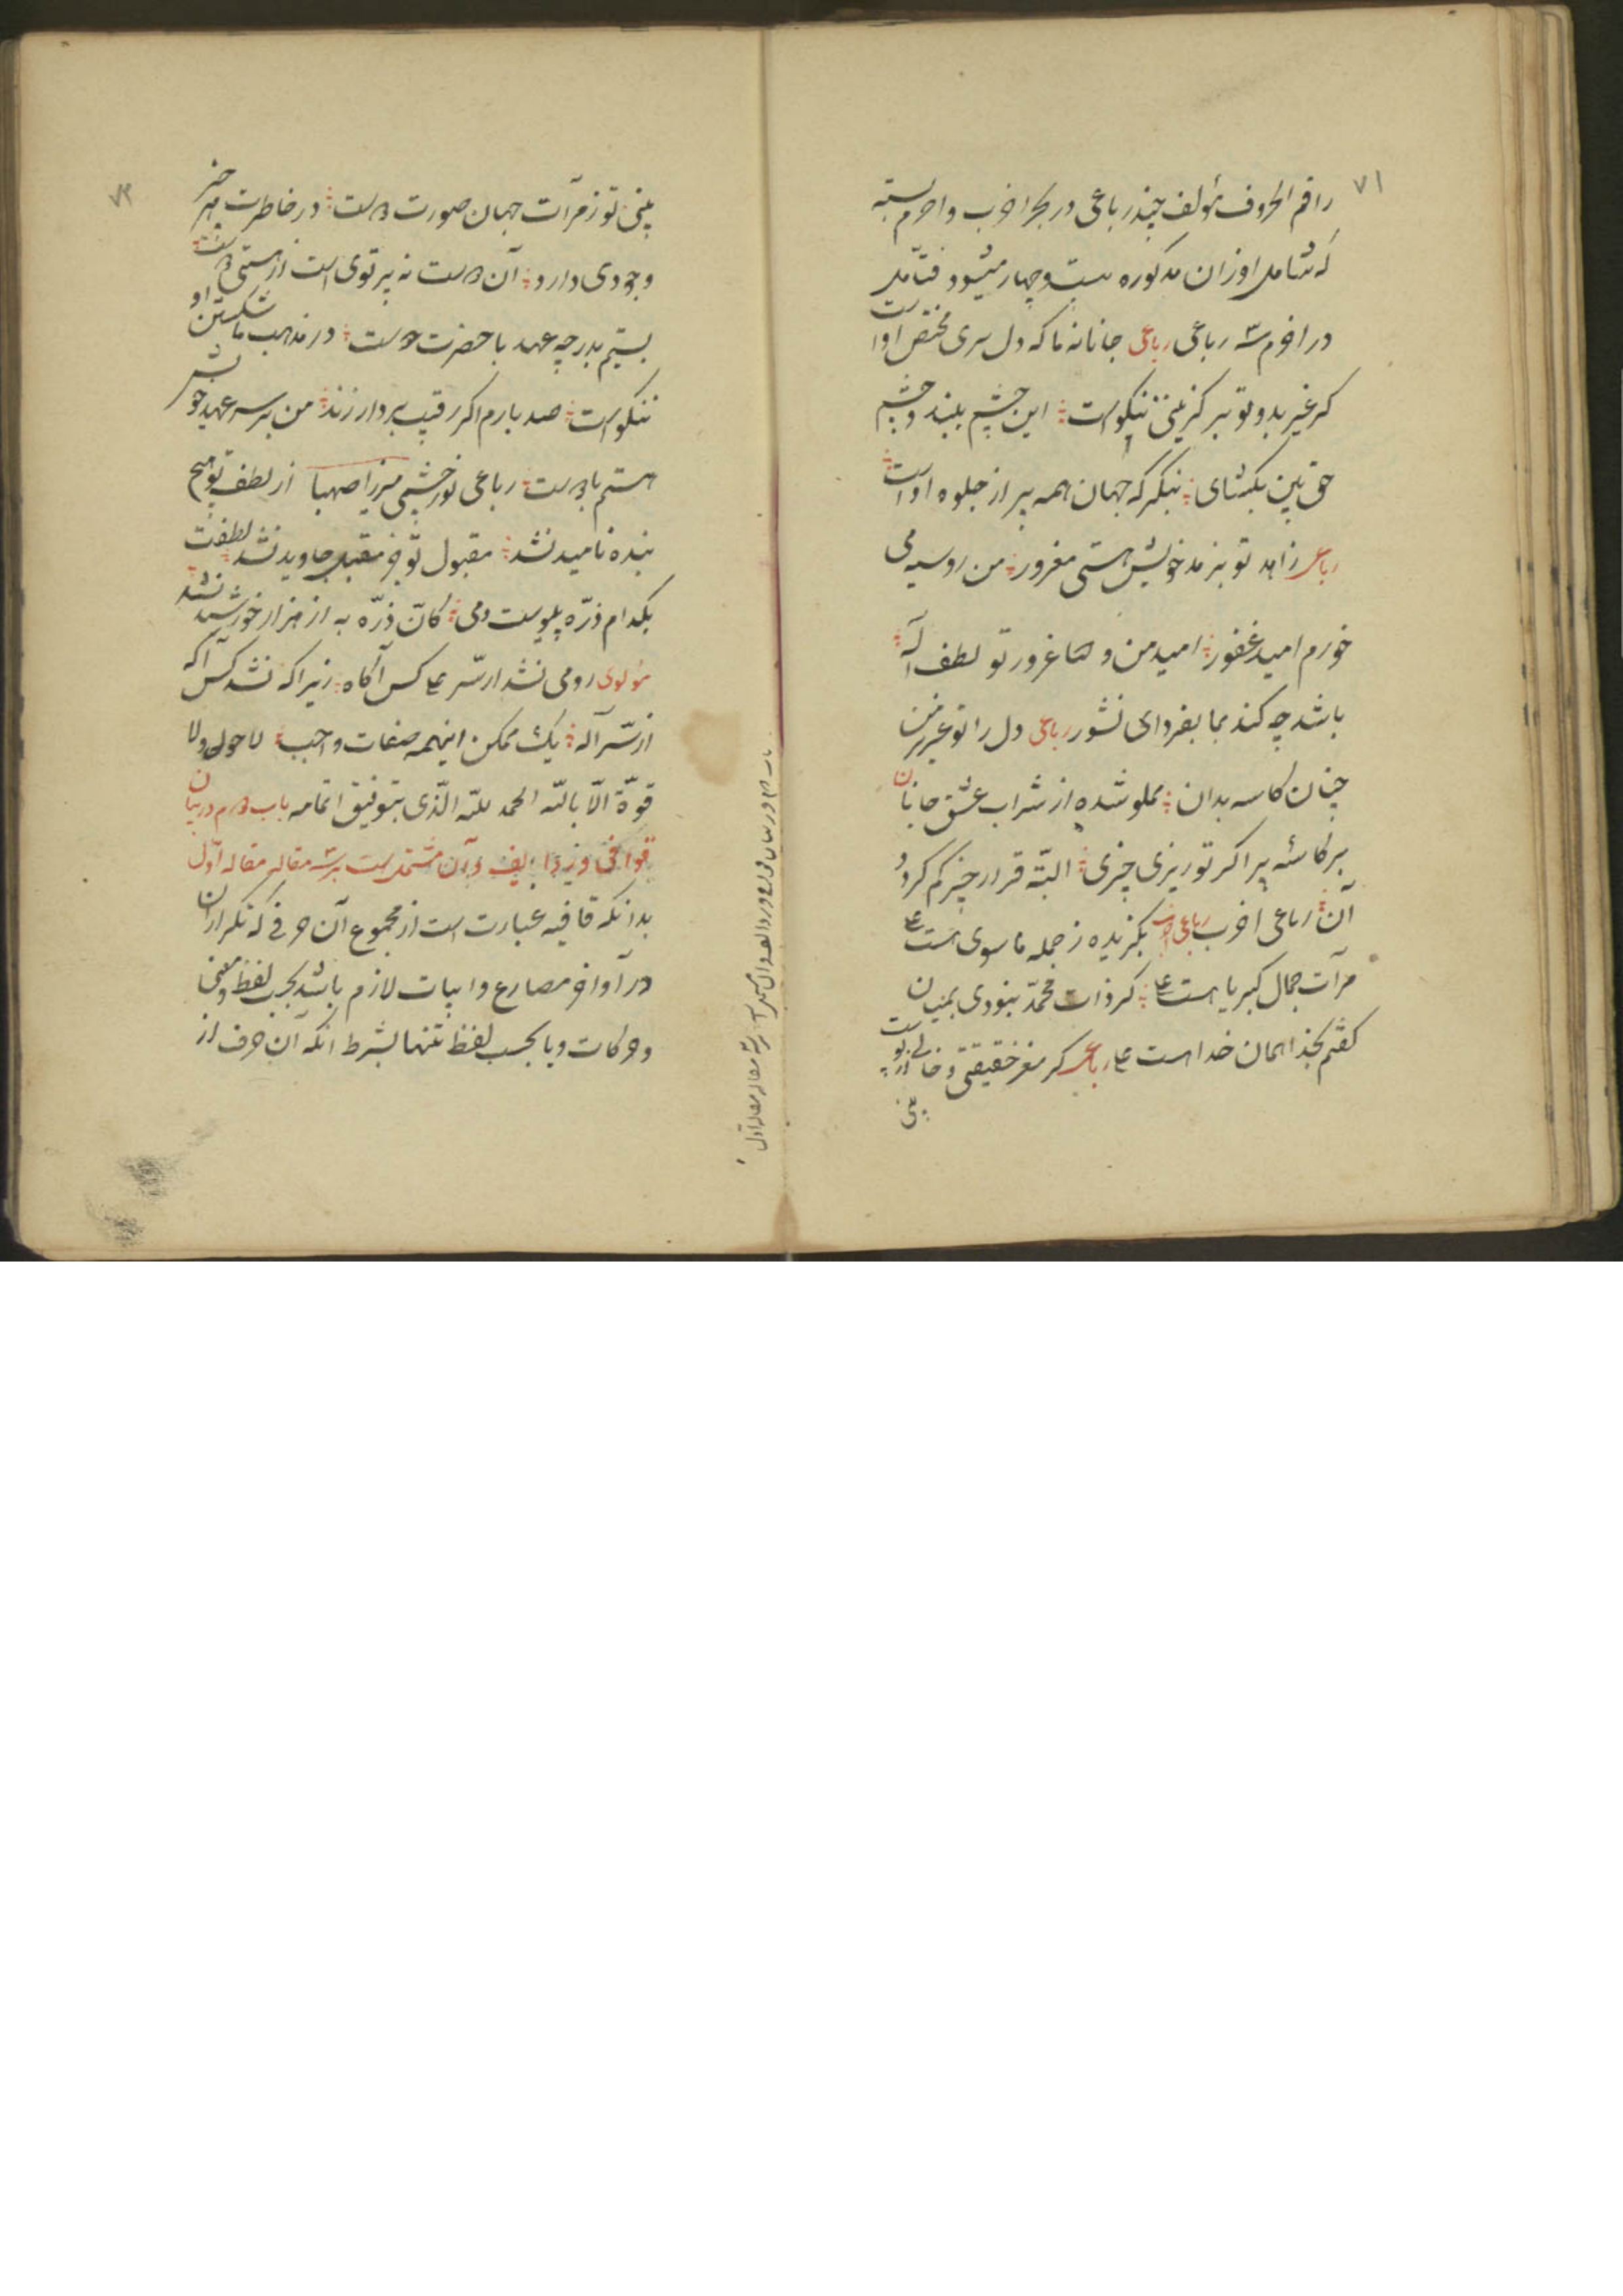 ۷۱
راقم الحروف مؤلف چند رباعی در بحر اخرب و اخرم بسته
که شامل اوزان مذکوره بیست و چهار میشود فتامل
در اخرم سه رباعی رباعی جانانه ما که دل سری مختص اوا ست
کر غیر بد و تو بر کزینی نیکوست این چشم ببند و چشم
حق بین بکشای بنکر که جهان همه پر از جلوه اواست
رباعی زاهد تو بزهد خویش هستی مغرور من روسیه می
خورم امید غفور امید من و غرور تو لطف آله
باشد چه کند بما بفردای نشور رباعی دل را تو عزیز من
چنان کاسه بدان مملو شده از شراب عشق جانان
بر کاسه پر اکر تو ریزی چیزی البته قرار چیز کم کردد
آن رباعی اخرب رباعی بکزیده ز جمله ما سوی است
مرآت جمال کبریا است کر ذات محمد بنودی بمیان
کفتم بخدا همان خدا است رباعی کر مغز حقیقتی و خالی از پوست
بینی
۷۲
بینی تو ز مرآت جهان صورت دوست در خاطرت هر چیز
وجودی دارد آن دوست نه پرتوی است از هستی دوست
بستیم بدر چه عهد با حضرت دوست در مذهب ما شکستن او
ننکوست صد بارم اکر رقیب بر دار زند من بر سر عهد خویش
هستم با دوست رباعی نور چشمی میرزا صهبا از لطف تو هیچ
بنده نامید نشد مقبول تو جز مقبل جاوید نشد لطفت
بکدام ذره پیوست دمی کان ذره به از هزار خورشید نشد
مولوی رومی نشد از سر کس آکاه زیرا که نشد کس آکه
از سر آله یک ممکن اینهمه صفات واجب لا حول ولا
قوة الا بالله الحمد لله الذی بتوفیق اتمامه باب دوم در بیان
قوافی و ردایف و آن مشتمل ست بر سه مقاله مقاله اول
بدانکه قافیه عبارت است از مجموع آن حرفی که تکرار آن
در آواخر مصارع و ابیات لازم باشد بحسب لفظ و معنی
و حرکات و یا بحسب لفظ تنها بشرط انکه آن حرف از